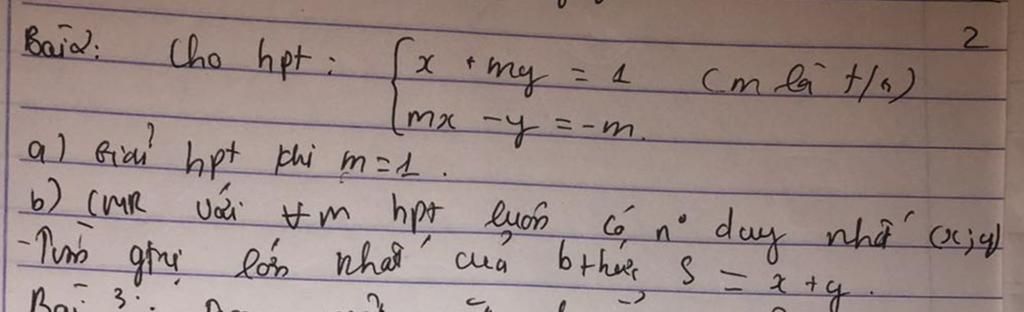 2
Bài 2: Cho hpt: { x + my = 1 (m là t/s)
mx - y = -m.
a) Giải hpt khi m = 1.
b) CMR với ∀m hpt luôn có n° duy nhất (x;y)
- Tìm gtrị lớn nhất của bthức S = x + y.
Bài 3: